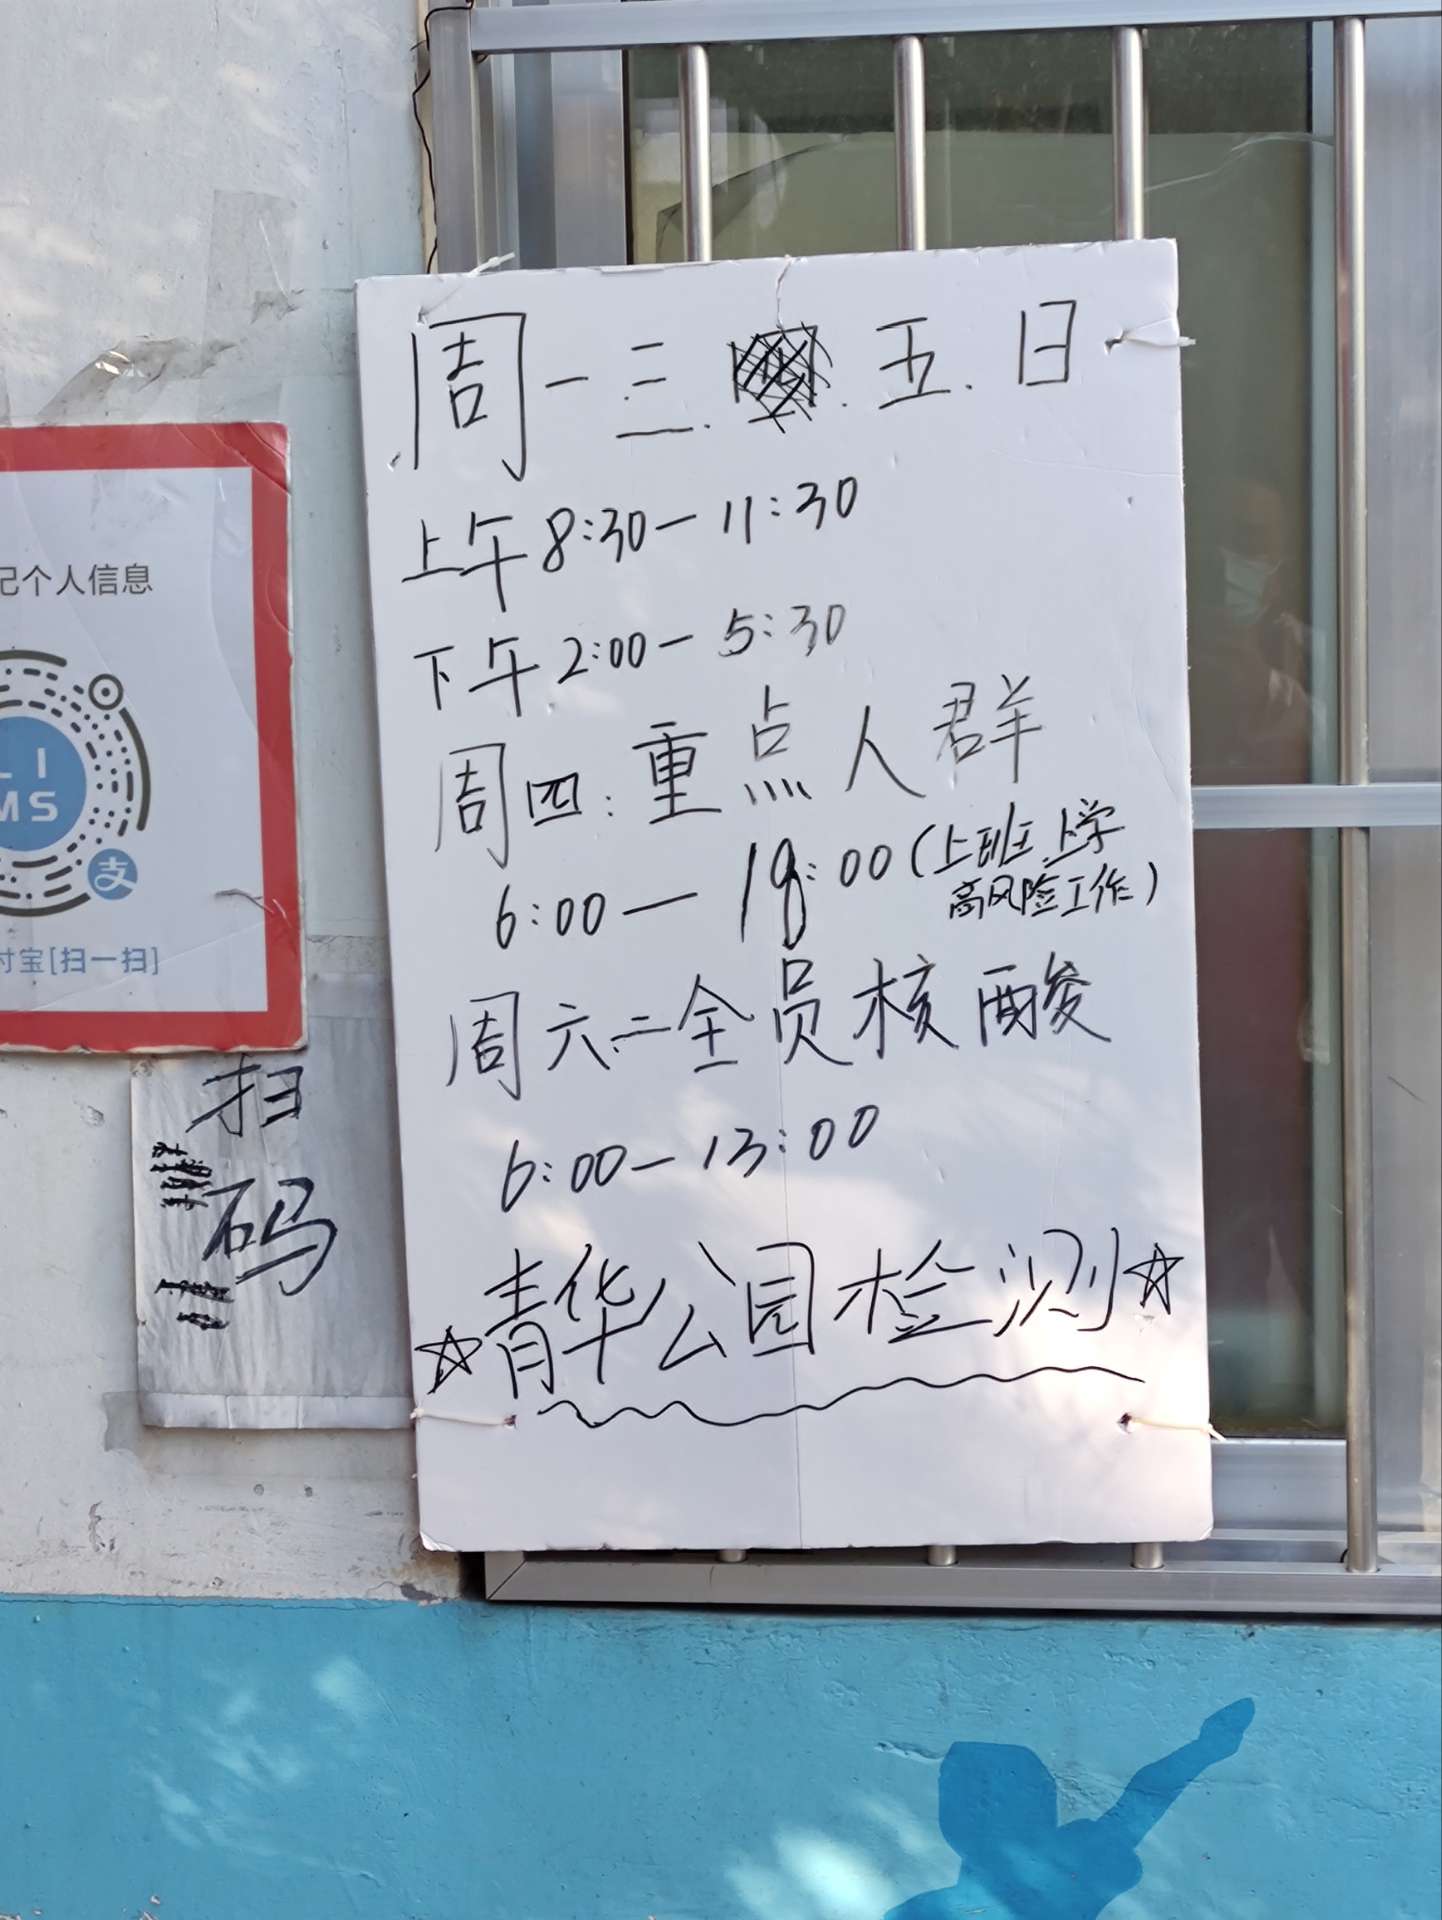 周一三.五.日
上午8:30—11:30
下午2:00—5:30
周四:重点人群
6:00—18:00(上班、上学
高风险工作)
周六、二全员核酸
6:00—13:00
☆青华公园检测☆
记个人信息
LI
MS
支
付宝[扫一扫]
扫
码